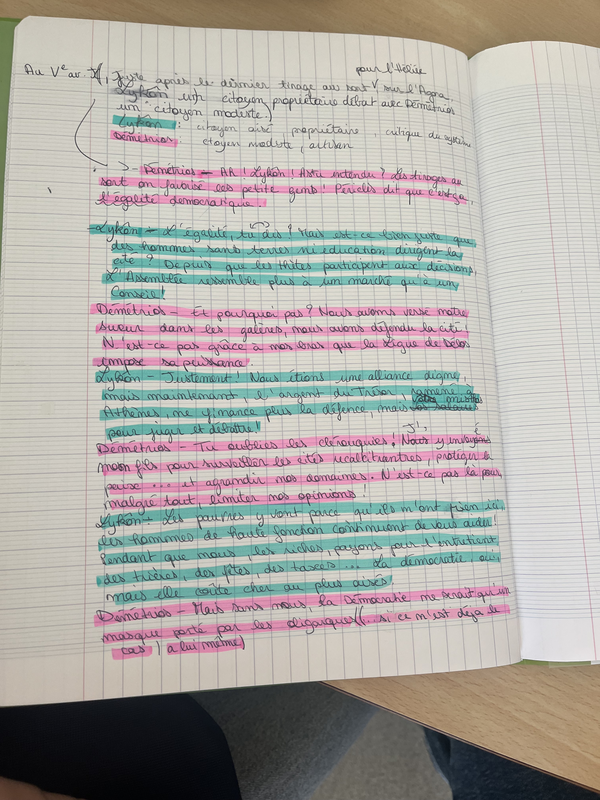 pour l'Héliée
Au Ve av. JC, Juste après le dernier tirage au sort sur l'Agora.
Lykôn un citoyen propriétaire débat avec Démétrios
un "citoyen modeste".
Lykôn : citoyen aisé, propriétaire, critique du système
Démétrios : citoyen modeste, artisan
> - Démétrios - AR ! Lykôn ! As-tu intendu ? Les tirages au
sort on favorisé les petite gens ! Périclès dit que c'est ça,
l'égalité démocratique.
- Lykôn - L'égalité, tu dis ? Mais est-ce bien juste que
des hommes sants terres ni éducation dirigent la
cité ? Depuis que les thètes participent aux décisions,
L'Assemblée ressemble plus a un marché qu'à un
Conseil !
Démétrios - Et pourquoi pas ? Nous avoms versé notre
sueur dans les galères, nous avoms défendu la cité !
N'est-ce pas grâce à nos bras que la Ligue de Délos
impose sa puissance.
Lykôn - Justement ! Nous étions une alliance digne,
mais maintenant, l'argent du Trésor, ramené a
Athènes, ne finance plus la défence, mais
pour juger et débatre !
Démétrios - Tu oublies les clérouquies. J'y
mon fils pour surveiller les cités récalcitrantes, protéger la
paix ... et agrandir nos domaines. N'est-ce pas là pour,
malgré tout, limiter nos opinions !
Lykôn - Les pauvres y vont parce qu'ils n'ont rien ici,
les hommes de haute fonction continuent de vous aider !
Pendant que nous, les riches, payons pour l'entretient
des trières, des fêtes, des taxes ... La démocratie, oui,
mais elle coûte cher au plus aisés
Démétrios - Mais sans nous, la Démocratie ne serait qu'un
masque porté par les oligarques (... si ce n'est déja le
cas ! a lui même)